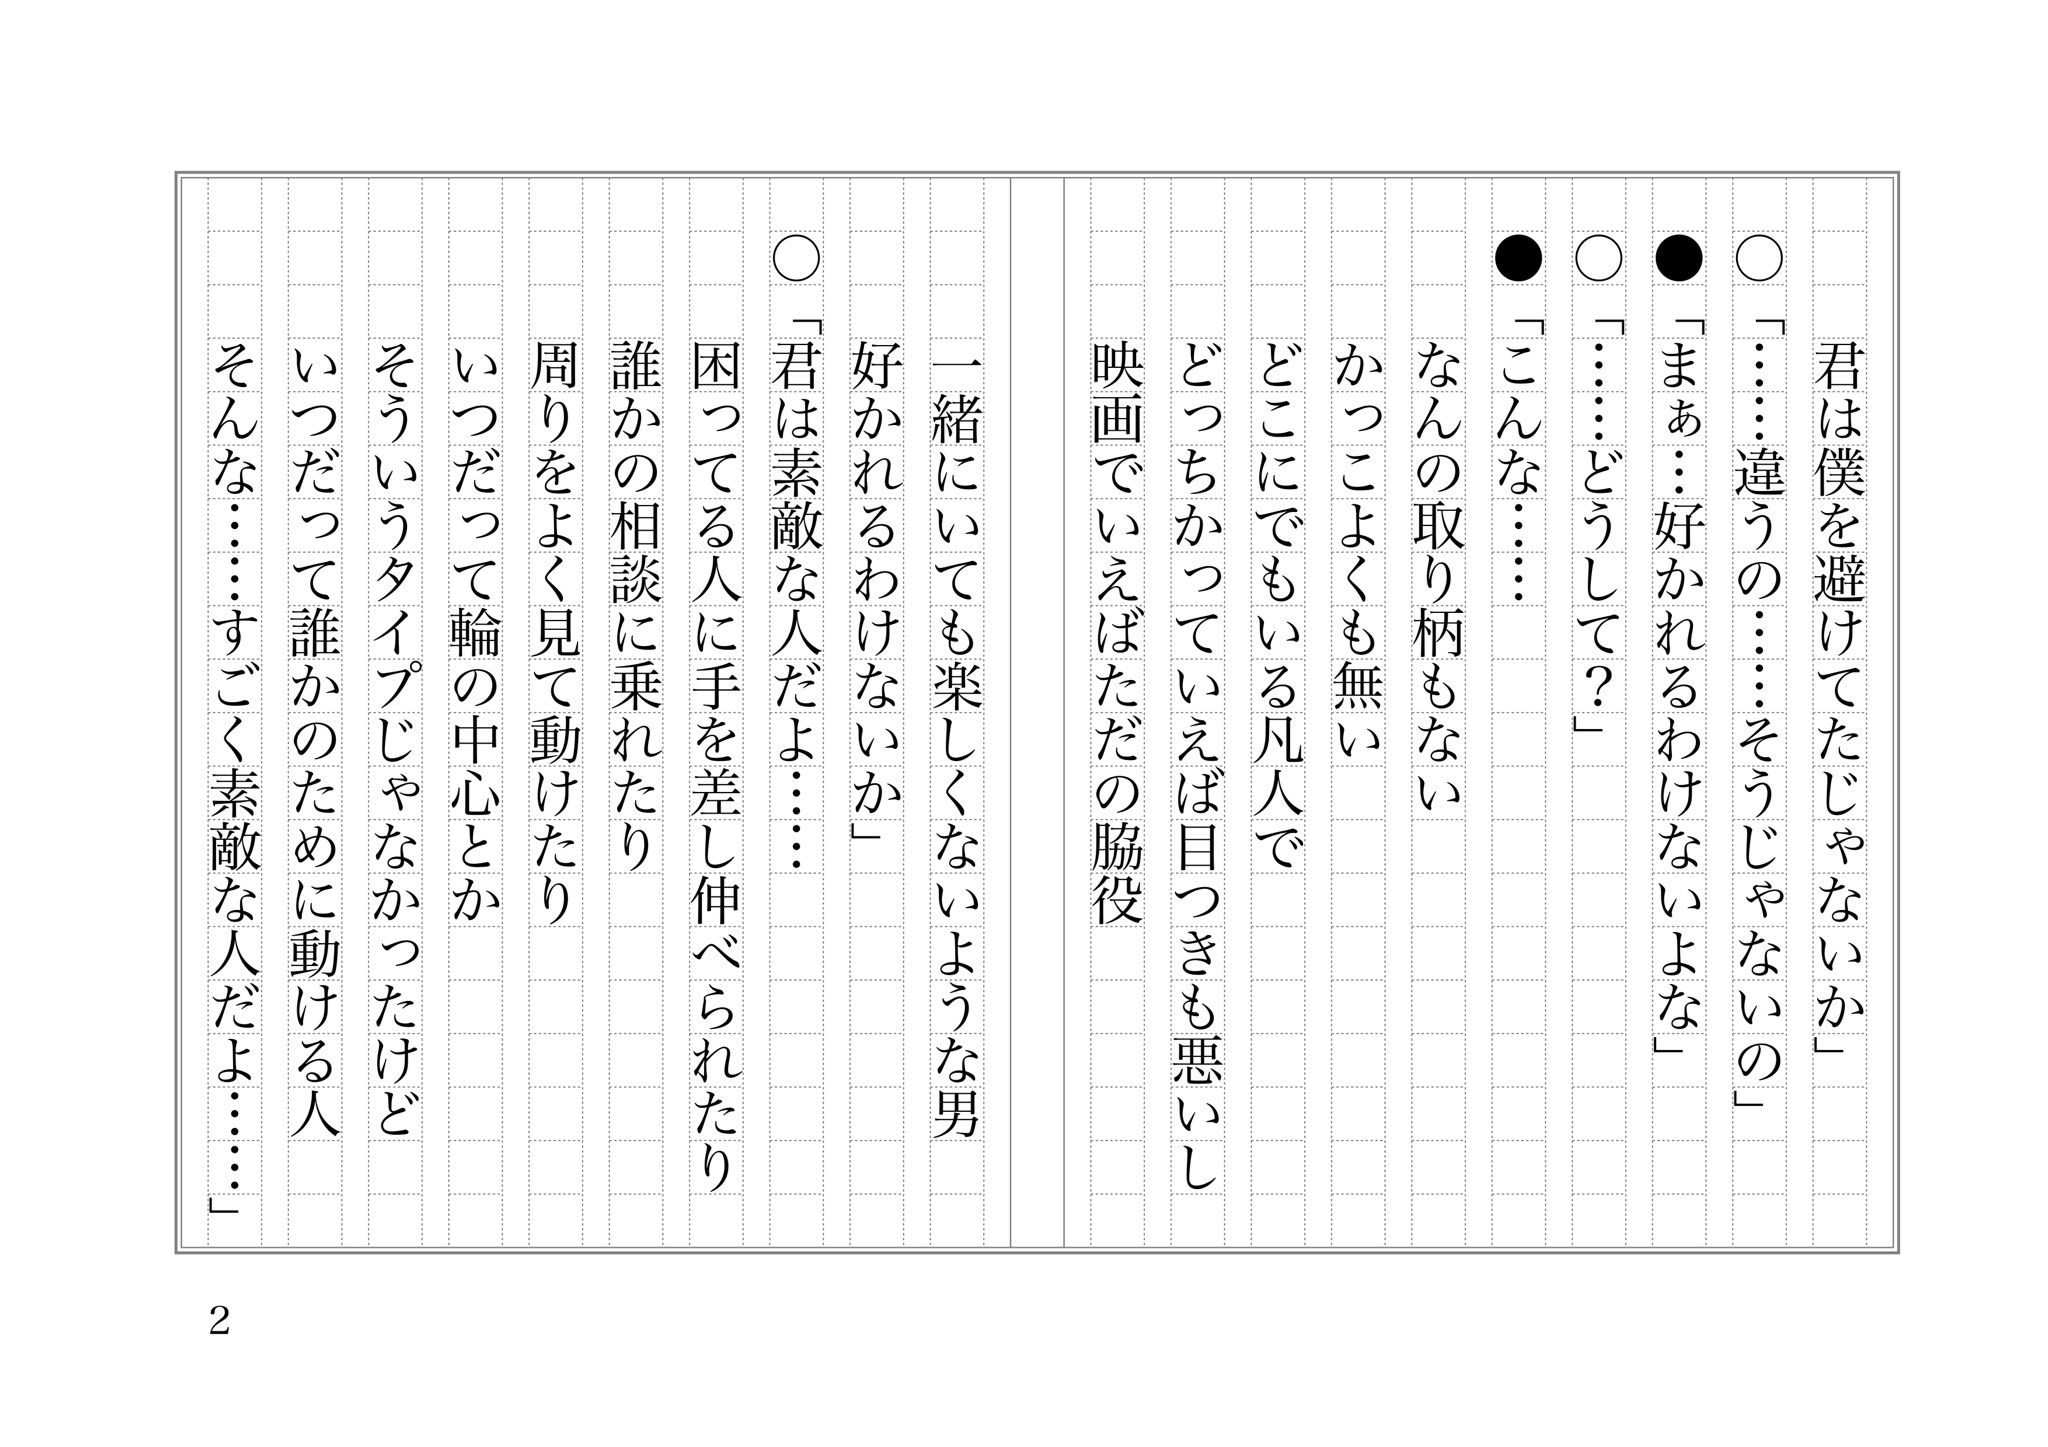 君は僕を避けてたじゃないか」
○「……違うの……そうじゃないの」
●「まぁ…好かれるわけないよな」
○「……どうして？」
●「こんな……
なんの取り柄もない
かっこよくも無い
どこにでもいる凡人で
どっちかっていえば目つきも悪いし
映画でいえばただの脇役
一緒にいても楽しくないような男
好かれるわけないか」
○「君は素敵な人だよ……
困ってる人に手を差し伸べられたり
誰かの相談に乗れたり
周りをよく見て動けたり
いつだって輪の中心とか
そういうタイプじゃなかったけど
いつだって誰かのために動ける人
そんな……すごく素敵な人だよ……」
2